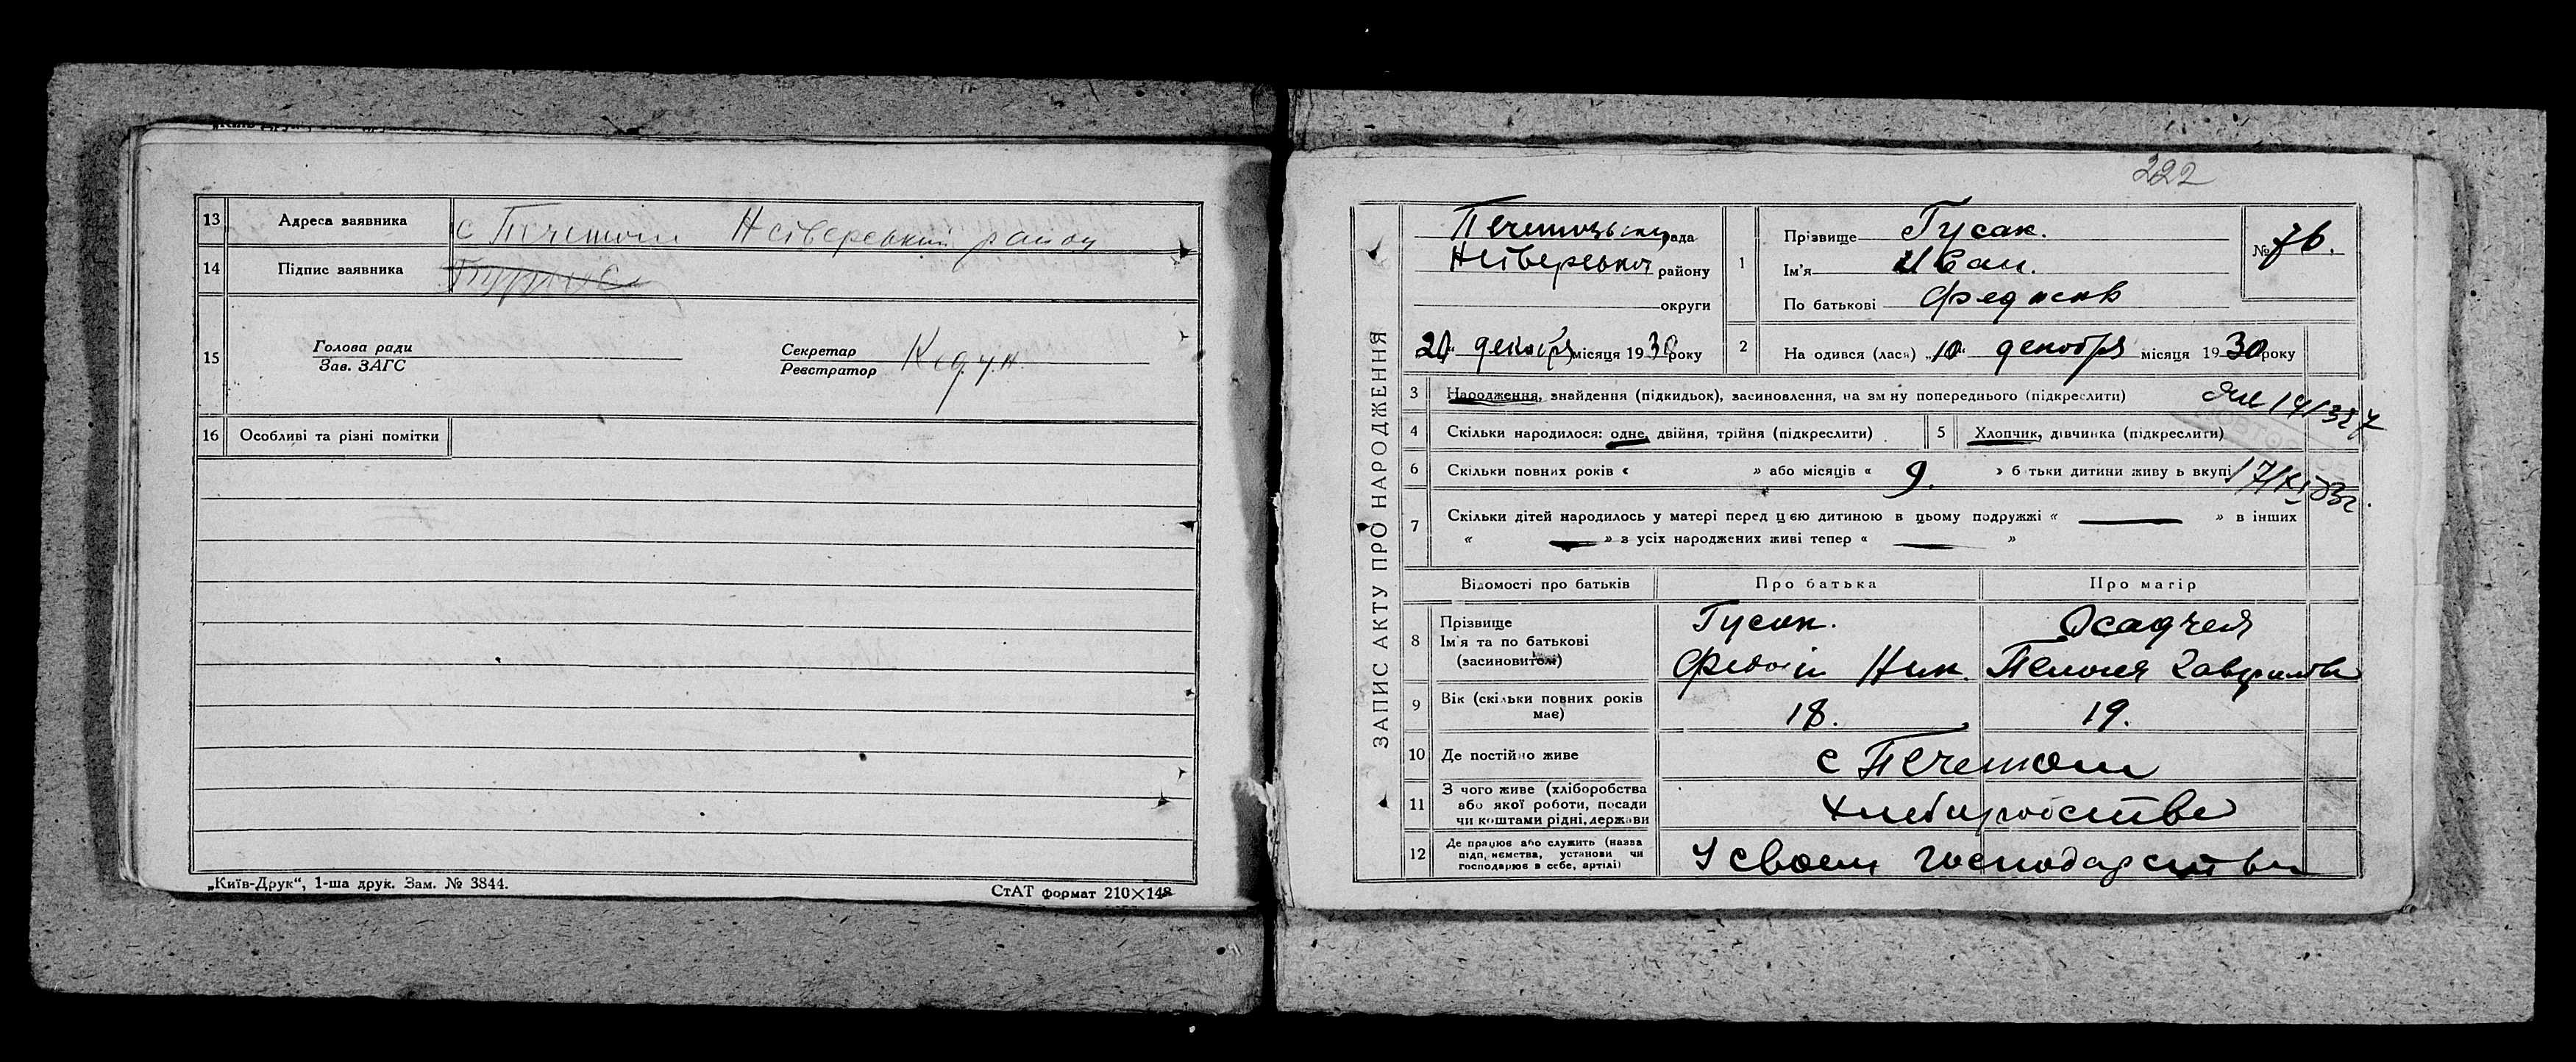 13 Адреса ваявника с Печетоги
14 Підпис ваявника
15 Голова ради
Зав. ЗАГС
Секретар
Реєстратор
16 Особливі та різні помітки
„Київ-Друк“, 1-ша друк. Зам. № 3844.
СтАТ формат 210×148
222
ЗАПИС АКТУ ПРО НАРОДЖЕННЯ
рада
району
округи
20 декабря місяця 1930 року
1 Прізвище Гусак.
Ім'я Иван.
По батькові
№ 76.
2 На одився (лась) „10“ декабря місяця 1930 року
3 Народження, знайдення (підкидьок), засиновлення, на зм ну попереднього (підкреслити)
4 Скільки народилося: одне, двійня, трійня (підкреслити)
5 Хлопчик, дівчинка (підкреслити)
6 Скільки повних років « » або місяців « 9. » б тьки дитини живу ь вкупі
7 Скільки дітей народилось у матері перед цією дитиною в цьому подружжі « — » в інших
« — » з усіх народжених живі тепер « — »
Відомості про батьків Про батька Про матір
8 Прізвище Гусак. Осадчая
Ім'я та по батькові
(засиновителі)
9 Вік (скільки повних років 18. 19.
має)
10 Де постійно живе
11 З чого живе (хліборобства
або якої роботи, посади
чи коштами рідні, держави
12 Де працює або служить (назва
підп, иємства, установи чи
господарює в себе, артілі)
У своем господарстви